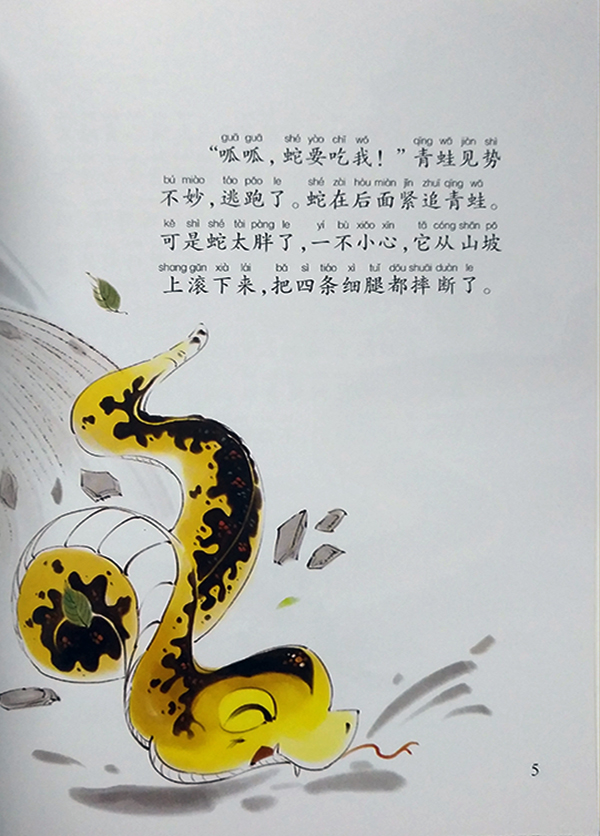 guā guā shé yào chī wǒ qīng wā jiàn shì
“呱呱，蛇要吃我！”青蛙见势
bú miào táo pǎo le shé zài hòu miàn jǐn zhuī qīng wā
不妙，逃跑了。蛇在后面紧追青蛙。
kě shì shé tài pàng le yí bù xiǎo xīn tā cóng shān pō
可是蛇太胖了，一不小心，它从山坡
shang gǔn xià lái bǎ sì tiáo xì tuǐ dōu shuāi duàn le
上滚下来，把四条细腿都摔断了。
5